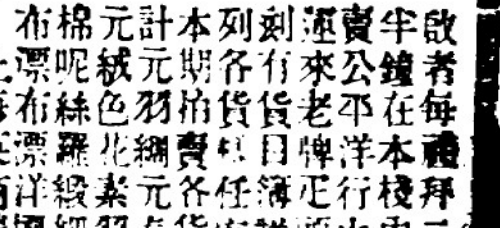 啟者每禮拜
半鐘在本棧
賣公平洋行
運來老牌正
刻有貨目簿
列各貨任
本期拍賣各貨
計元羽綢元
元絨色花素羽
棉呢絲羅緞
布漂布漂洋